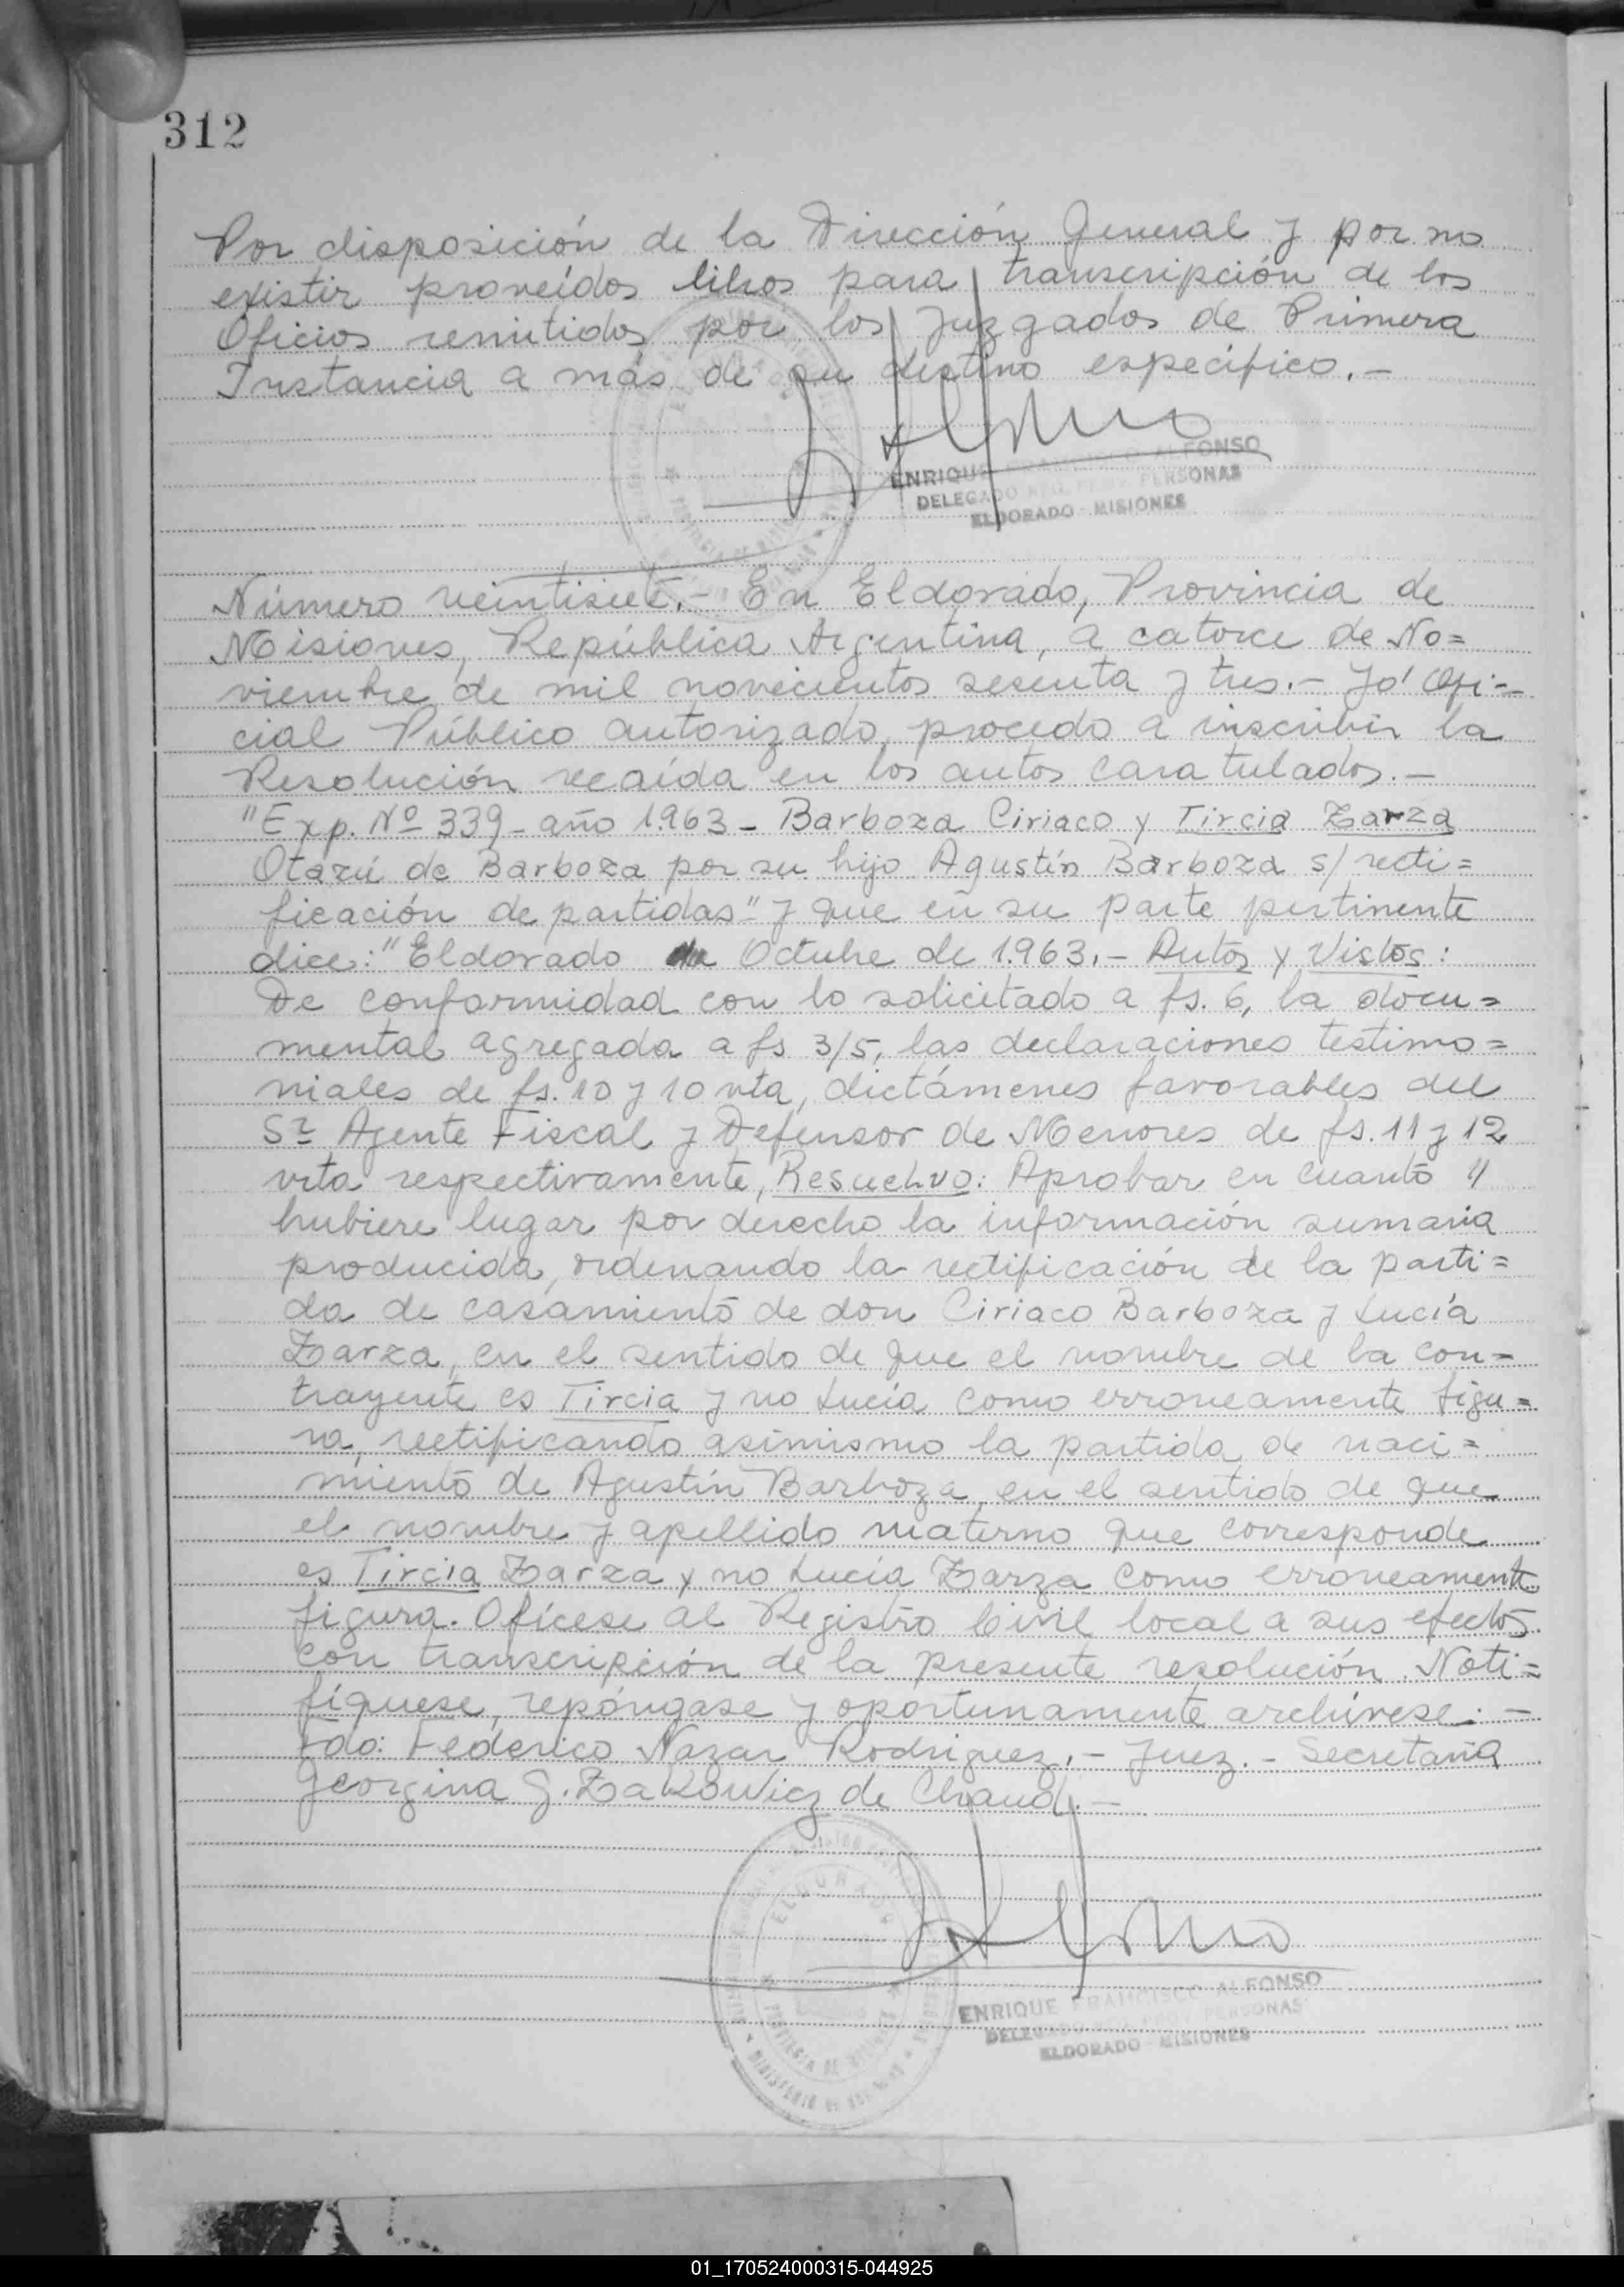 312
Por disposición de la Dirección General y por no
existir proveídos libros para transcripción de los
Oficios remitidos por los Juzgados de Primera
Instancia a más de su destino específico.-
ENRIQUE FRANCISCO ALFONSO
DELEGADO REG. PROV. PERSONAS
ELDORADO - MISIONES
Número veintisiete.- En Eldorado, Provincia de
Misiones, República Argentina, a catorce de No=
viembre de mil novecientos sesenta y tres.- Yo Ofi-
cial Público autorizado, procedo a inscribir la
Resolución recaída en los autos caratulados.-
"Exp. Nº 339 - año 1.963 - Barboza Ciriaco y Tircia Zarza
Otazú de Barboza por su hijo Agustín Barboza s/ recti=
ficación de partidas" y que en su parte pertinente
dice: "Eldorado Octubre de 1.963.- Autos y Vistos:
De conformidad con lo solicitado a fs. 6, la docu=
mental agregada a fs 3/5, las declaraciones testimo=
niales de fs. 10 y 10 vta, dictámenes favorables del
Sr Agente Fiscal y Defensor de Menores de fs. 11 y 12
vta respectivamente, Resuelvo: Aprobar en cuanto "
hubiere lugar por derecho la información sumaria
producida, ordenando la rectificación de la parti=
da de casamiento de don Ciriaco Barboza y Lucía
Zarza, en el sentido de que el nombre de la con=
trayente es Tircia y no Lucía como erroneamente figu=
ra, rectificando asimismo la partida de naci=
miento de Agustín Barboza, en el sentido de que
el nombre y apellido materno que corresponde
es Tircia Zarza y no Lucía Zarza como erroneamente
figura. Ofícese al Registro Civil local a sus efectos
con transcripción de la presente resolución. Noti=
fíquese, repóngase y oportunamente archívese.-
Fdo: Federico Nazar Rodriguez.- Juez.- Secretaria
Georgina G. Zakowicz de Chaud.-
ELDORADO
ENRIQUE FRANCISCO ALFONSO
DELEGADO REG. PROV. PERSONAS
ELDORADO - MISIONES
01_170524000315-044925